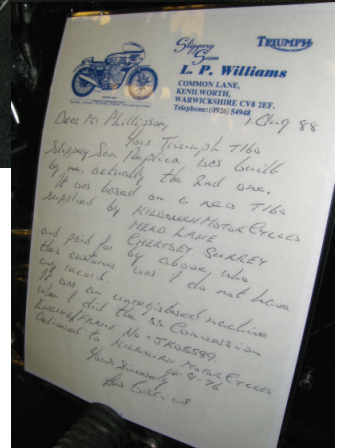 Slippery Sam
TRIUMPH
L. P. Williams
COMMON LANE,
KENILWORTH,
WARWICKSHIRE CV8 2EF.
Telephone: (0926) 54948
1 Aug 88
Dear Mr Phillipson,
Your Triumph T160
Slippery Sam Replica was built
by me, actually the 2nd one.
It was based on a new T160
supplied by KILBOURN MOTOR CYCLES
MEAD LANE
CHERTSEY SURREY
and paid for by above, who
the customer was I do not have
any record.
It was an unregistered machine
when I did the SS Conversion
ENGINE/FRAME No = JK05589
Delivered to KILBOURN MOTOR CYCLES
Yours Sincerely